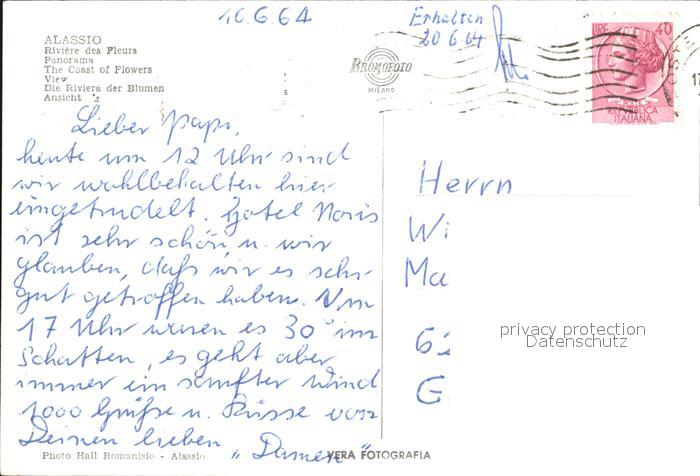 16.6.64
Erhalten
20 6.64
ALASSIO
Rivière des Fleurs
Panorama
The Coast of Flowers
View
Die Riviera der Blumen
Ansicht
BROMOFOTO
MILANO
LIRE 40
REPVBBLICA
ITALIANA
Lieber Papi,
heute um 12 Uhr sind
wir wohlbehalten hier
eingetrudelt. Hotel Noris
ist sehr schön, u. wir
glauben, daß wir es sehr
gut getroffen haben. Um
17 Uhr waren es 30° im
Schatten, es geht aber
immer ein sanfter Wind
1000 Grüße u. Küsse von
Deinen lieben "Damen"
Herrn
Wi
Ma
62
G
privacy protection
Datenschutz
Photo Hall Romanisio - Alassio
VERA FOTOGRAFIA